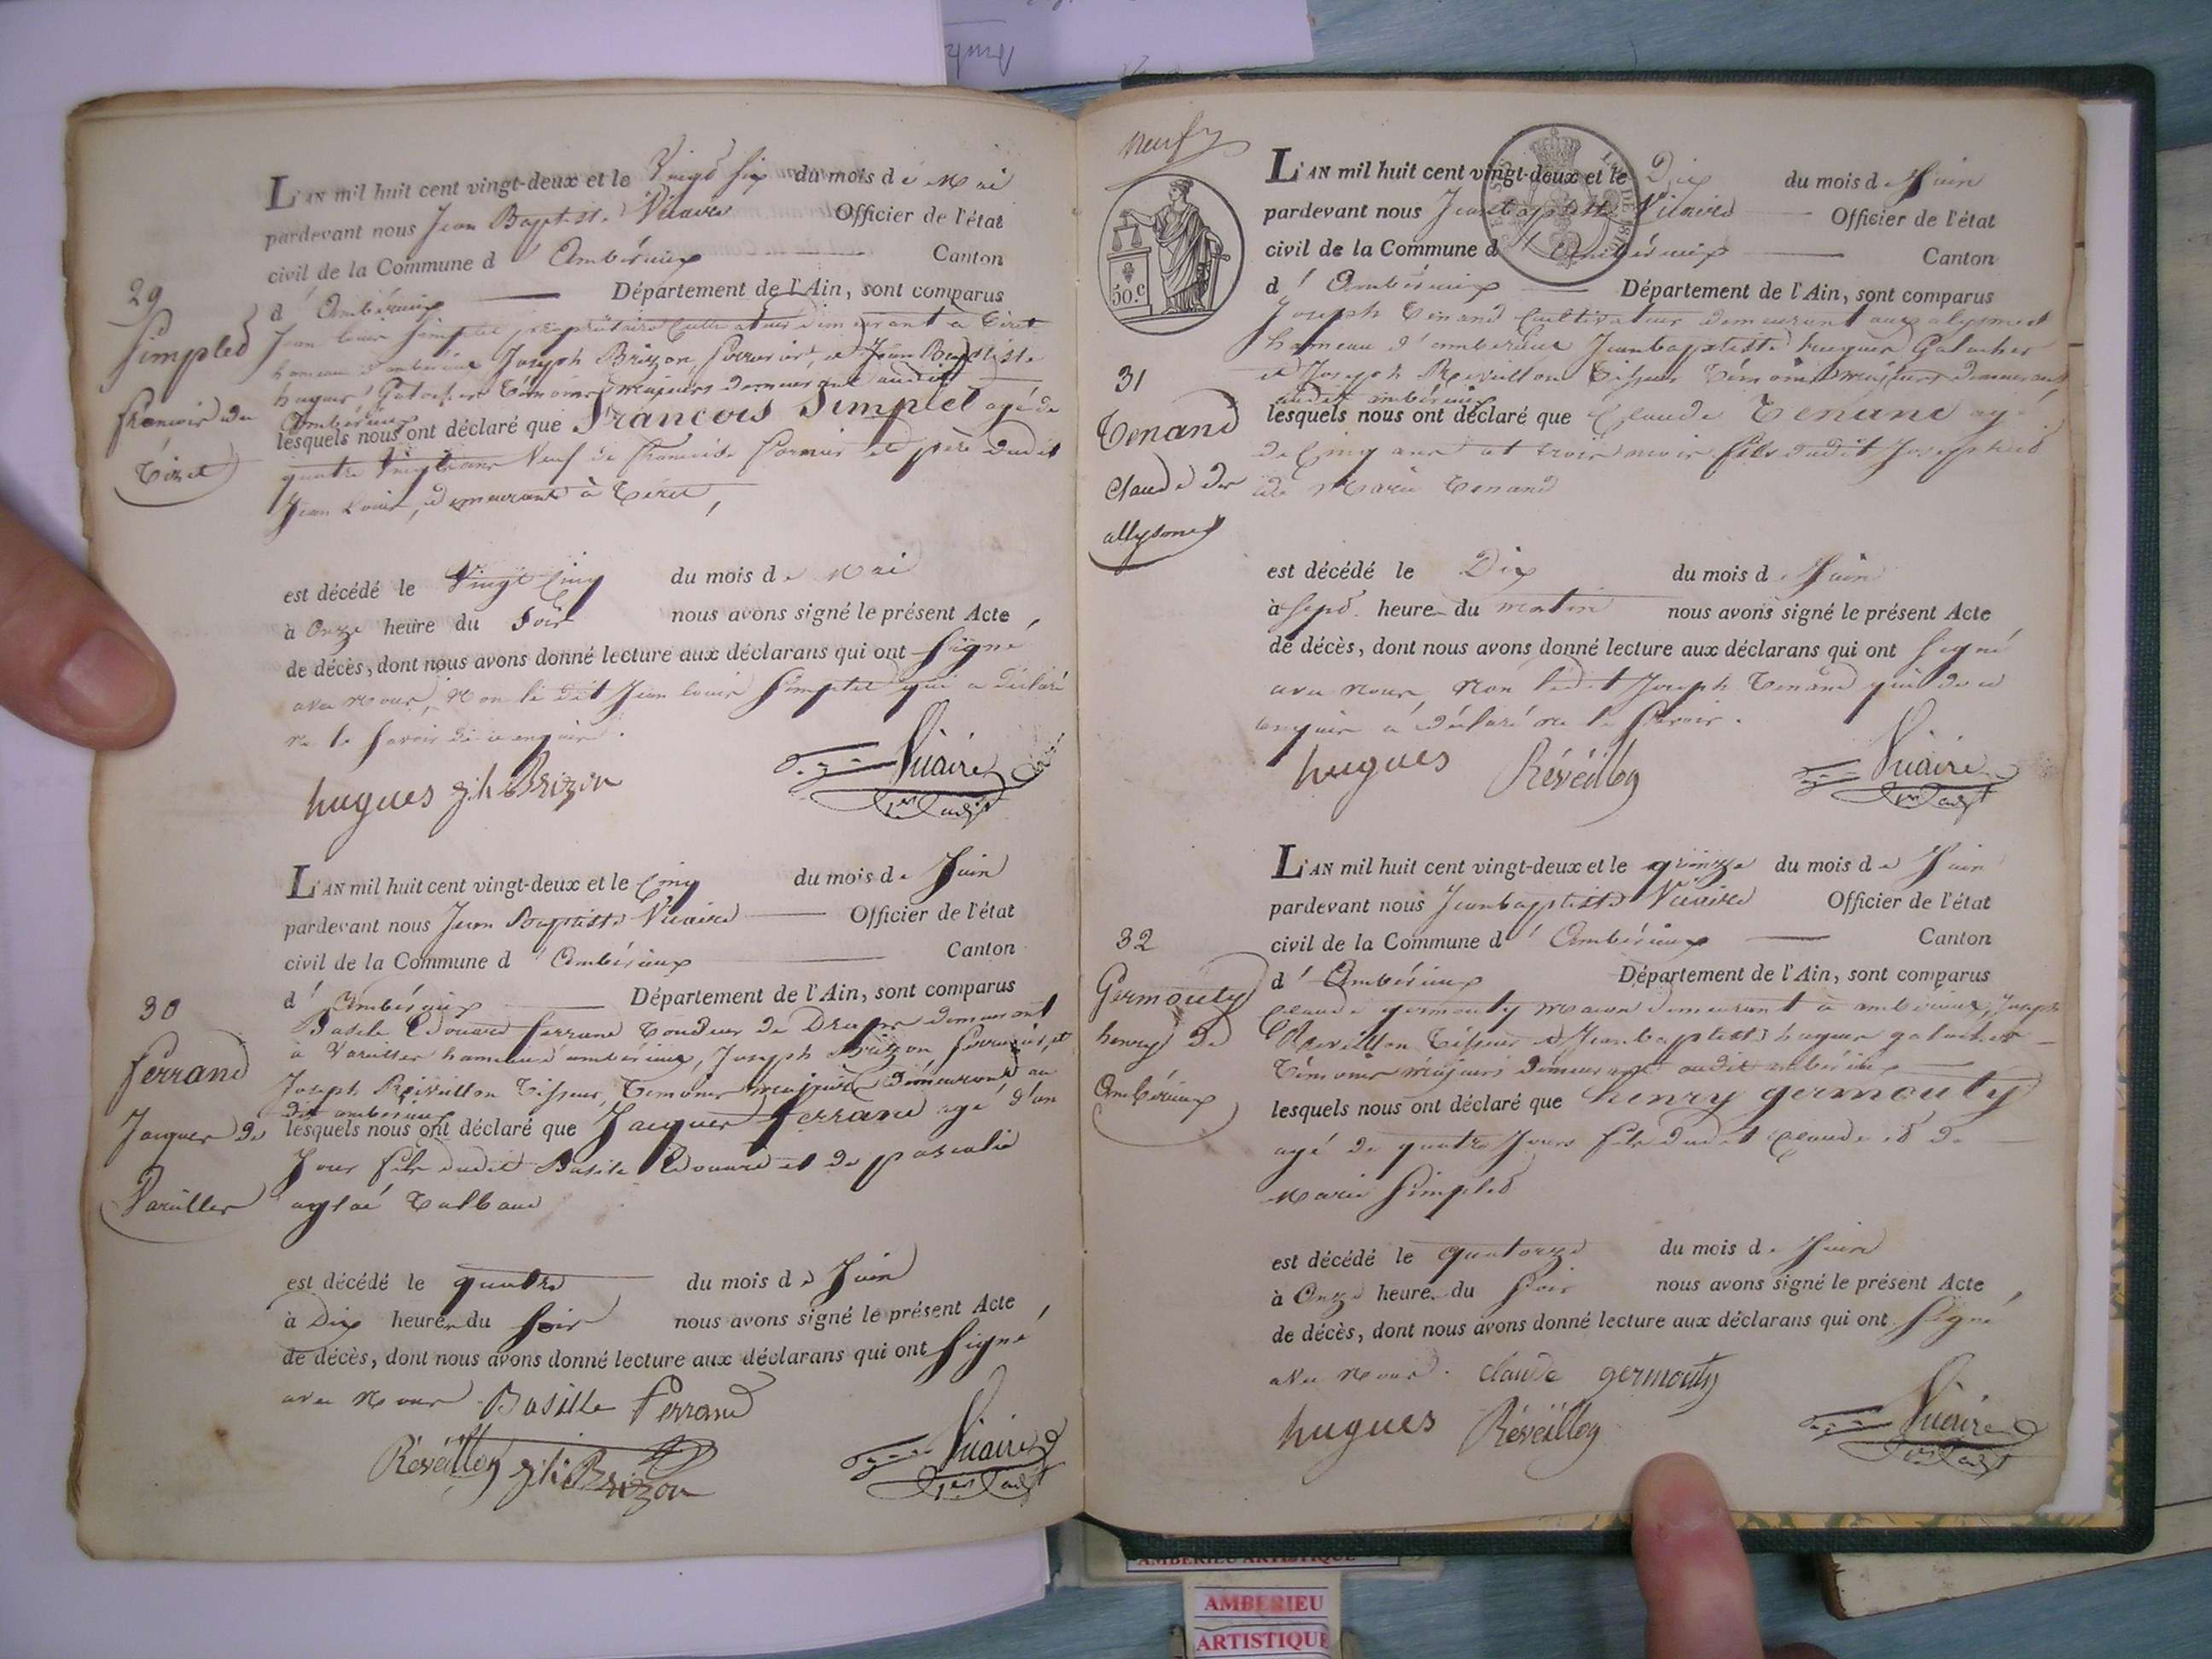 L'AN mil huit cent vingt-deux et le Vingt Six du mois de Mai
pardevant nous Jean Baptiste Vicaire Officier de l'état
civil de la Commune d'Ambérieux Canton
d'Ambérieux Département de l'Ain, sont comparus
Jean Louis Simplet propriétaire Cultivateur demeurant a Tiret
hameau d'ambérieux Joseph Brizon, Serrurier, et Jean Baptiste
hugues Galochier Témoins majeurs demeurant audit
Ambérieux
lesquels nous ont déclaré que Francois Simplet agé de
quatre Vingt ans Veuf de Francoise Cornier et père dudit
Jean Louis, demeurant à Tiret,
29
Simplet
francois de
Tiret
est décédé le Vingt Cinq du mois de Mai
à Onze heure du Soir nous avons signé le présent Acte
de décès, dont nous avons donné lecture aux déclarans qui ont Signé,
avec Nous, Non le dit Jean Louis Simplet qui a déclaré
ne le Savoir de ce enquis.
hugues jh Brizon Vicaire
L'AN mil huit cent vingt-deux et le Cinq du mois de Juin
pardevant nous Jean Baptiste Vicaire Officier de l'état
civil de la Commune d'Ambérieux Canton
d'Ambérieux Département de l'Ain, sont comparus
Basile Edouard ferrand Tondeur de Draps demeurant
à Vareilles hameau d'ambérieux, Joseph Brizon Serrurier, et
Joseph Réveillon Tisseur, Temoins majeurs demeurant au
dit ambérieux
lesquels nous ont déclaré que Jacques ferrand agé d'un
Jour fils dudit Basile Edouard et de pascalie
aglaé
30
ferrand
Jacques de
Vareilles
est décédé le quatre du mois de Juin
à Dix heure du Soir nous avons signé le présent Acte
de décès, dont nous avons donné lecture aux déclarans qui ont Signé,
avec Nous Basille Ferrand
Réveillon jh Brizon Vicaire
neuf
50.c
L'AN mil huit cent vingt-deux et le Dix du mois de Juin
pardevant nous Jeanbaptiste Vicaire Officier de l'état
civil de la Commune d'Ambérieux Canton
d'Ambérieux Département de l'Ain, sont comparus
Joseph Tenand Cultivateur demeurant aux alymes
hameau d'ambérieux Jeanbaptiste hugues Galochier
et Joseph Réveillon Tisseur Témoins majeurs demeurant
audit ambérieux
lesquels nous ont déclaré que Claude Tenand agé
de Cinq ans et trois mois fils dudit Joseph et
de Marie Tenand
31
Tenand
Claude des
allysmes
est décédé le Dix du mois de Juin
à Sept heure du matin nous avons signé le présent Acte
de décès, dont nous avons donné lecture aux déclarans qui ont Signé
avec Nous, Non ledit Joseph Tenand qui de ce
enquis a déclaré ne le Savoir.
hugues Réveillon Vicaire
L'AN mil huit cent vingt-deux et le quinze du mois de Juin
pardevant nous Jeanbaptiste Vicaire Officier de l'état
civil de la Commune d'Ambérieux Canton
d'Ambérieux Département de l'Ain, sont comparus
Claude germouty Macon demeurant à ambérieux, Joseph
Réveillon Tisseur et Jeanbaptiste hugues galochier
Témoins majeurs demeurant audit ambérieux
lesquels nous ont déclaré que henry germouty
agé de quatre Jours fils dudit Claude et de
Marie Simplet
32
Germouty
henry de
Ambérieux
est décédé le quatorze du mois de Juin
à Onze heure du Soir nous avons signé le présent Acte
de décès, dont nous avons donné lecture aux déclarans qui ont Signé,
avec Nous. Claude germouty
hugues Réveillon Vicaire
AMBERIEU ARTISTIQUE
AMBERIEU
ARTISTIQUE